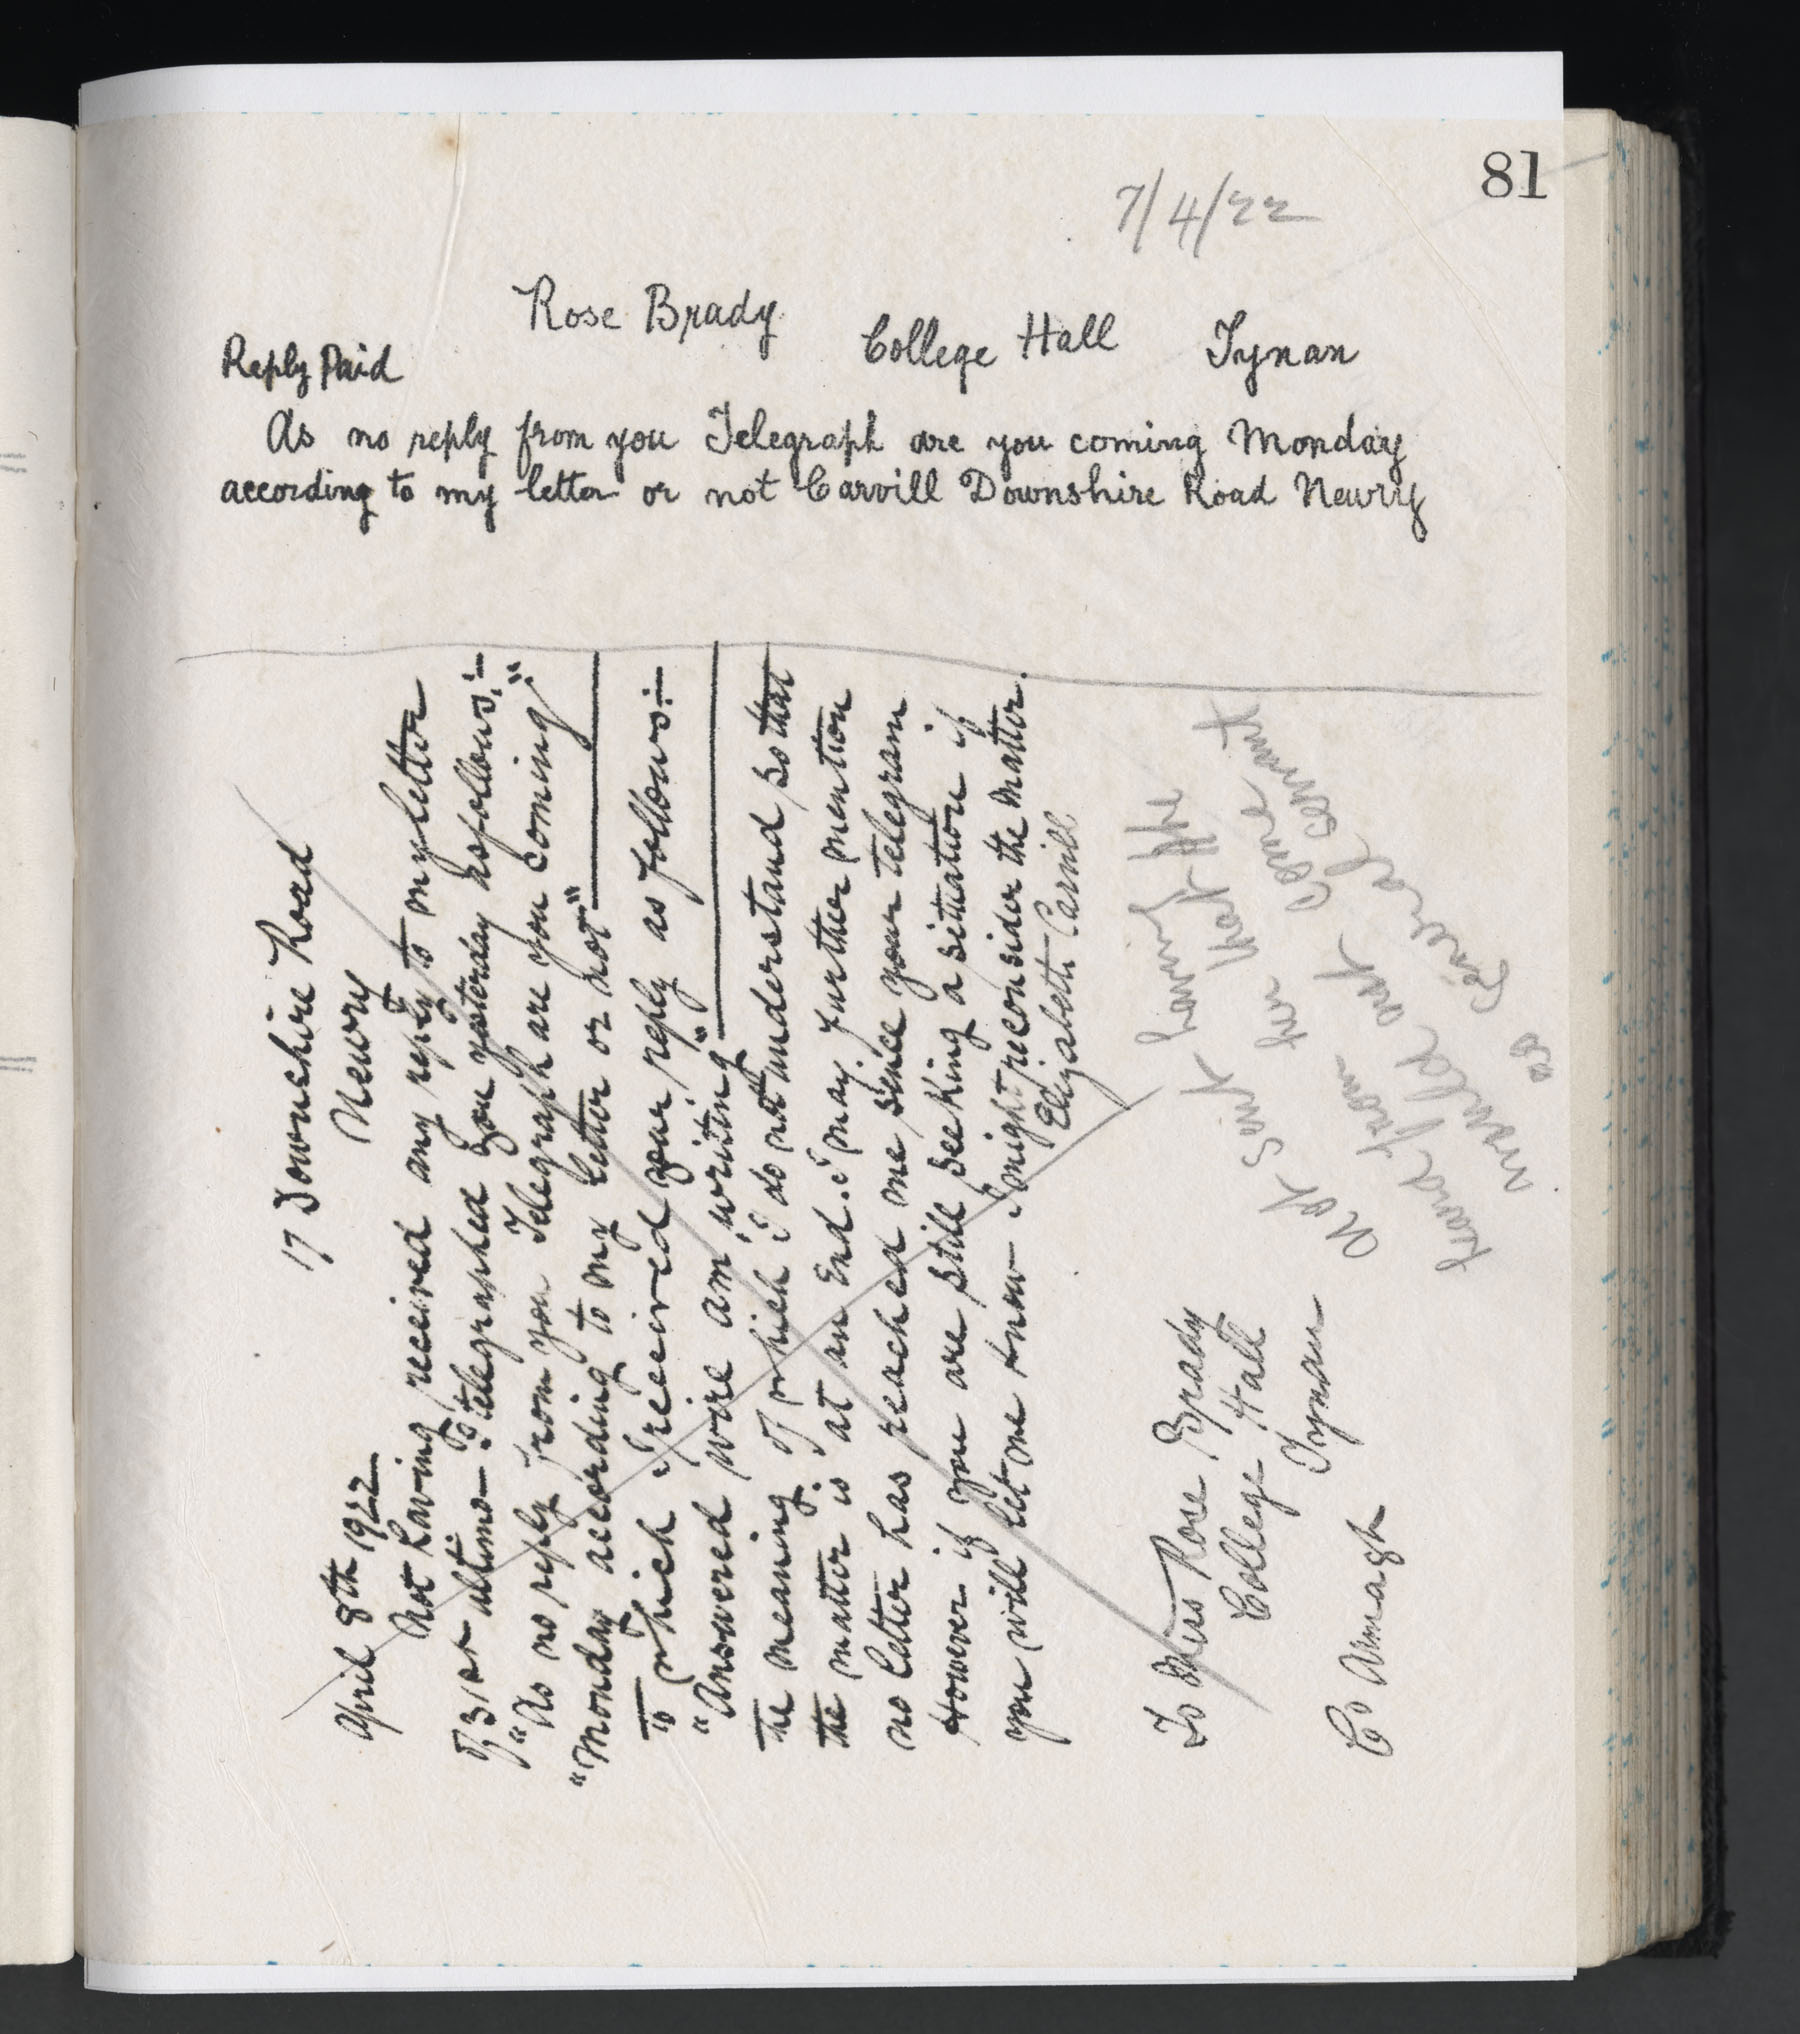 81
7/4/22
Rose Brady
College Hall Tynan
Reply Paid
As no reply from you Telegraph are you coming Monday
according to my letter or not Carvill Downshire Road Newry
17 Downshire Road
Newry
April 8th 1922
Not having received any reply to my letter
of 31st ultimo - I telegraphed you yesterday as follows:-
"As no reply from you Telegraph are you coming"
"Monday according to my letter or not"
to which I received your reply as follows:-
"Answered wire am writing"
the meaning of which I do not understand so that
the matter is at an end. I may further mention
no letter has reached me since your telegram
However if you are still seeking a situation if
you will let me know I might reconsider the matter.
Elizabeth Carvill
To Miss Rose Brady
College Hall
Tynan
Co Armagh
Not sent having the
heard from her that she
would not come
as General servant